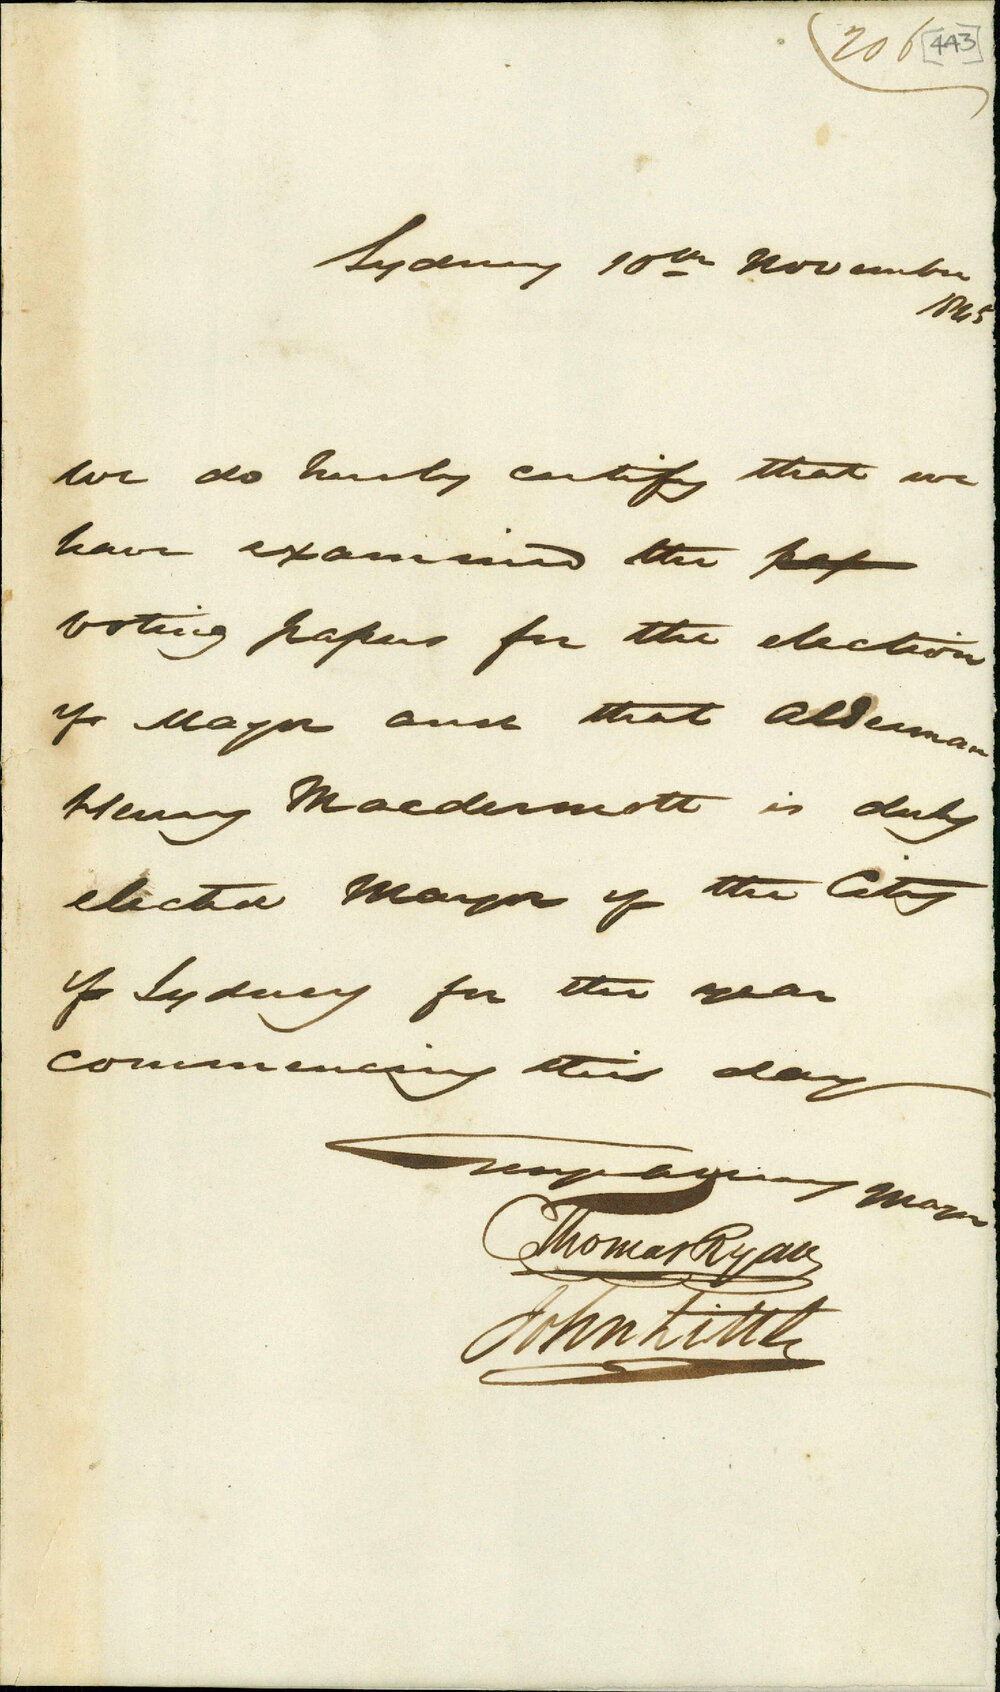 206 [443]
Sydney 10th November
1845
We do hereby certify that we
have examined the pap
voting papers for the election
of Mayor and that Alderman
Henry Macdermott is duly
elected Mayor of the City
of Sydney for the year
commencing this day
Mayor
Thomas Ryan
John Little